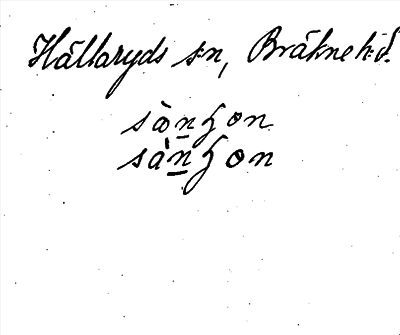 Hällaryds sn, Bräkne hd.
sàn̲ʒon
sàn̲ʒon